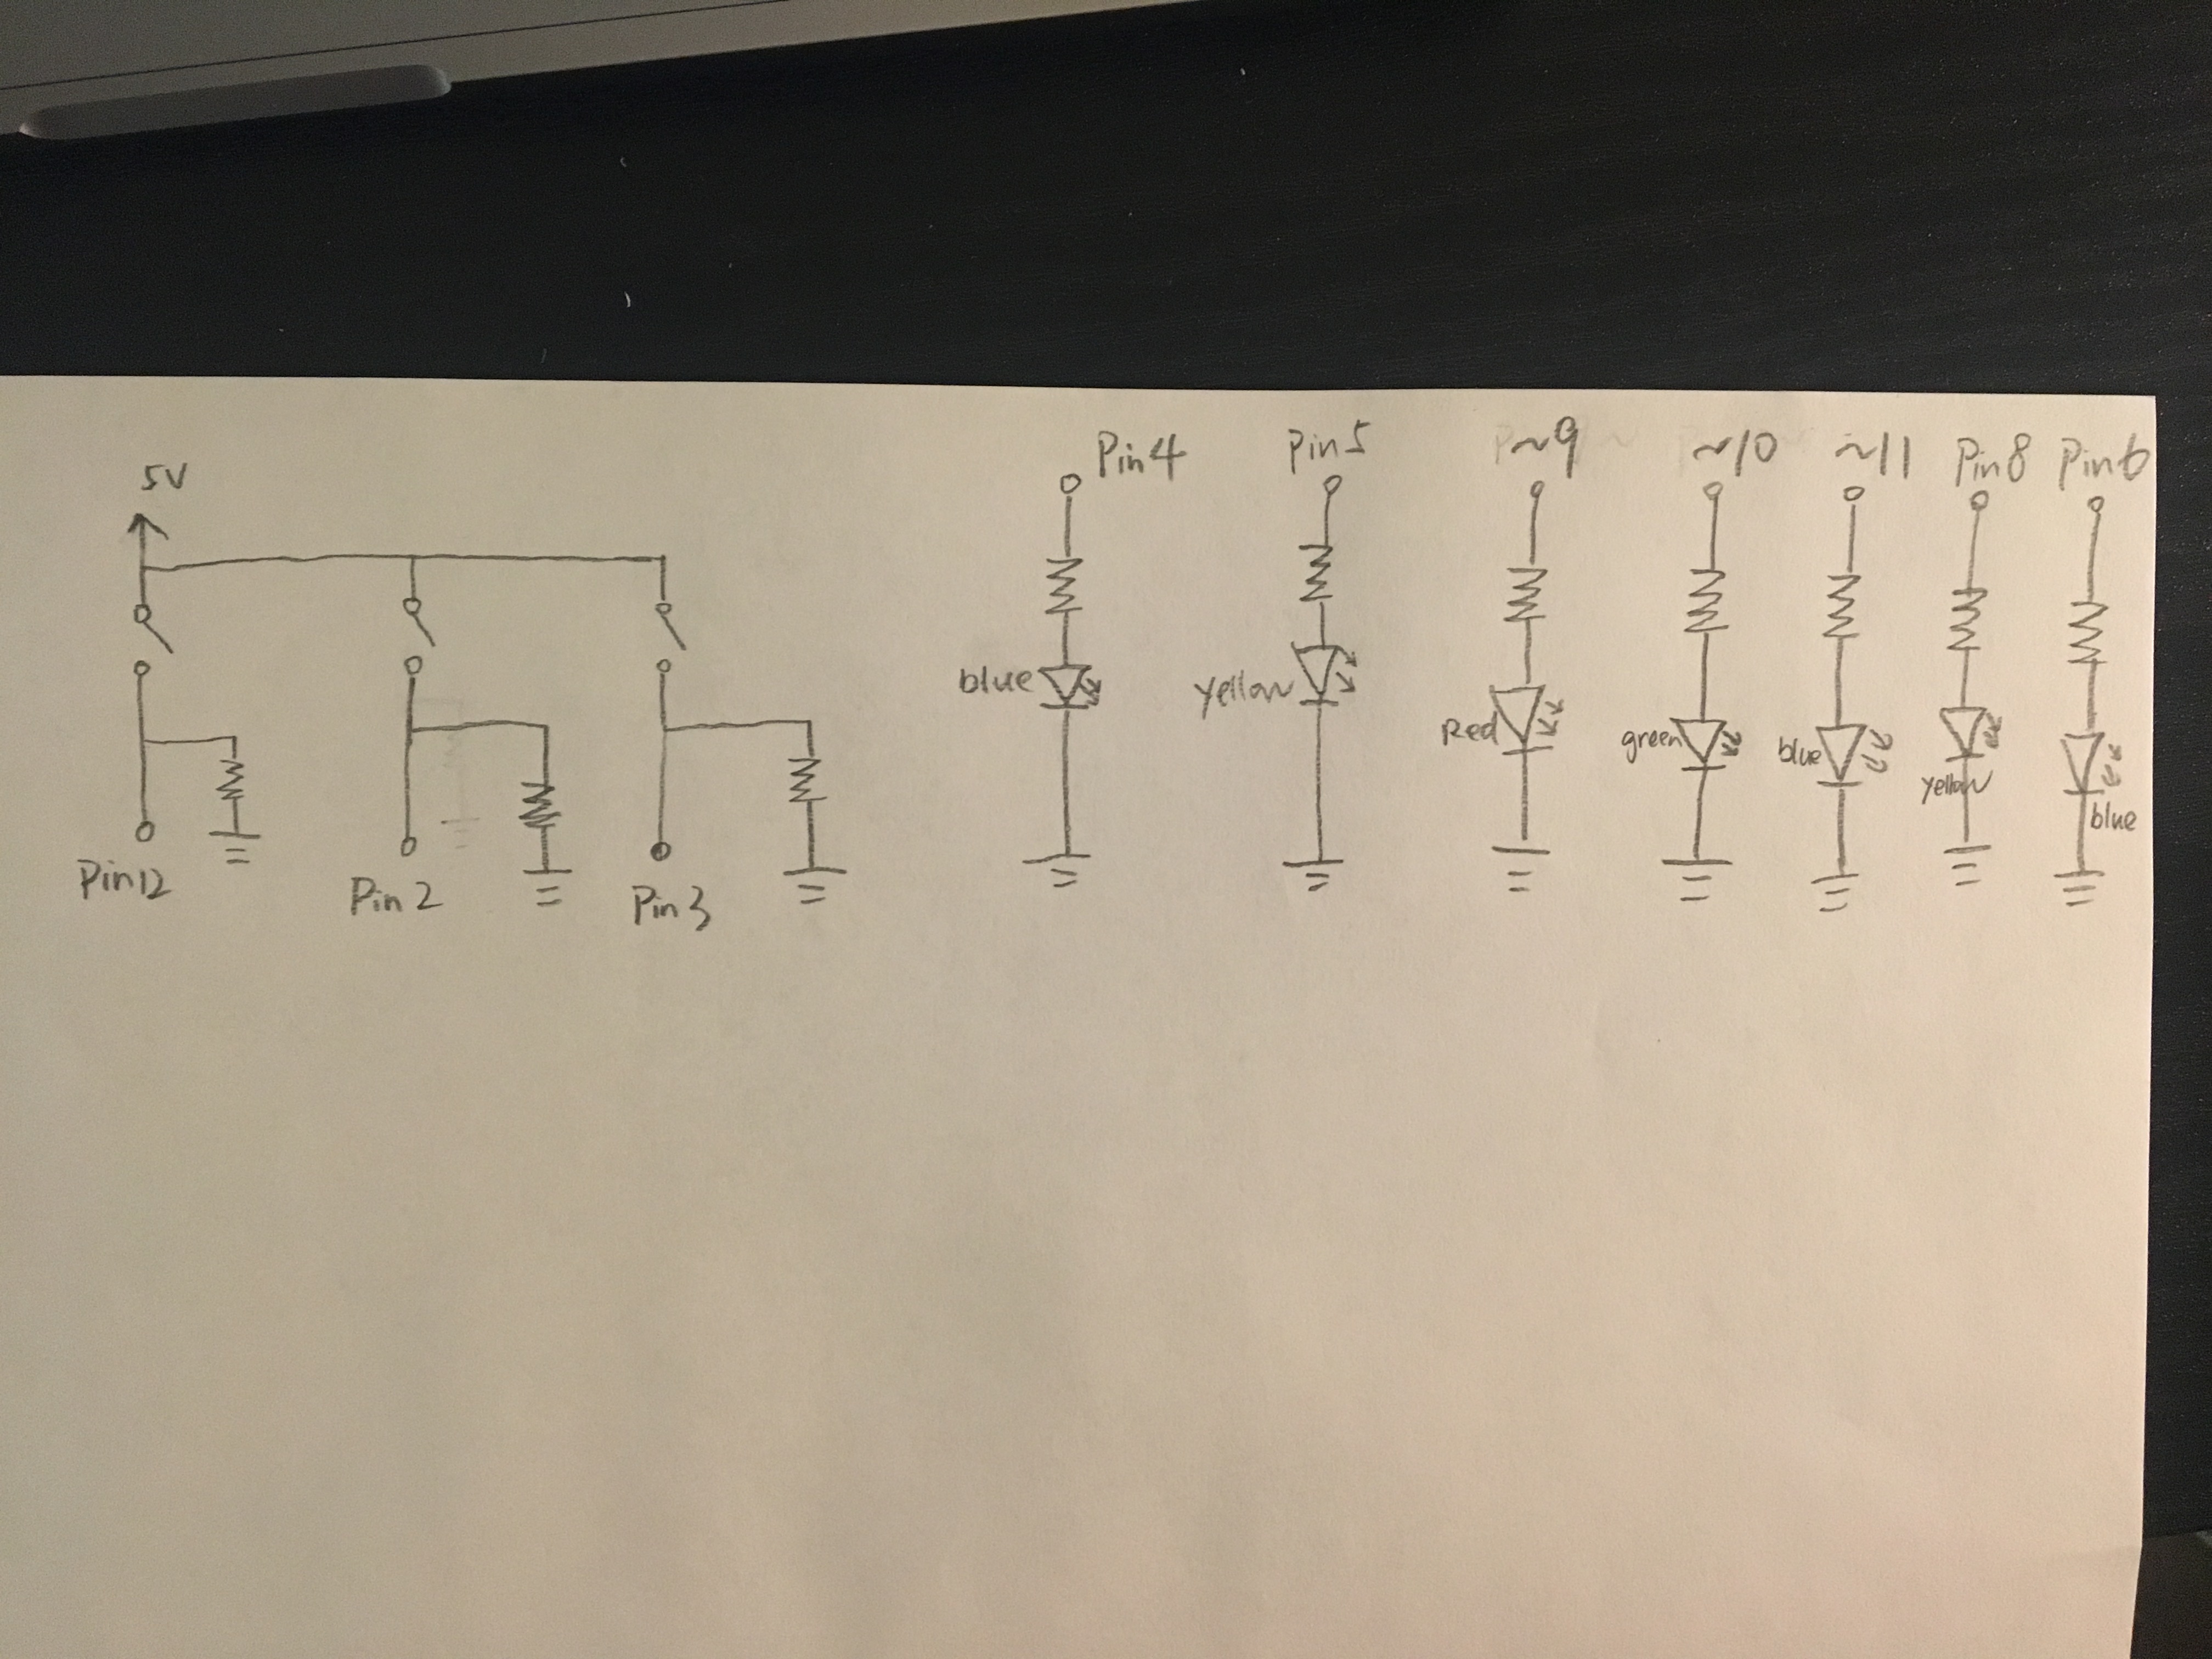 5V
Pin12
Pin 2
Pin 3
Pin4
blue
Pin5
Yellow
Pin9
Red
~10
green
~11
blue
Pin8
Yellow
Pin6
blue